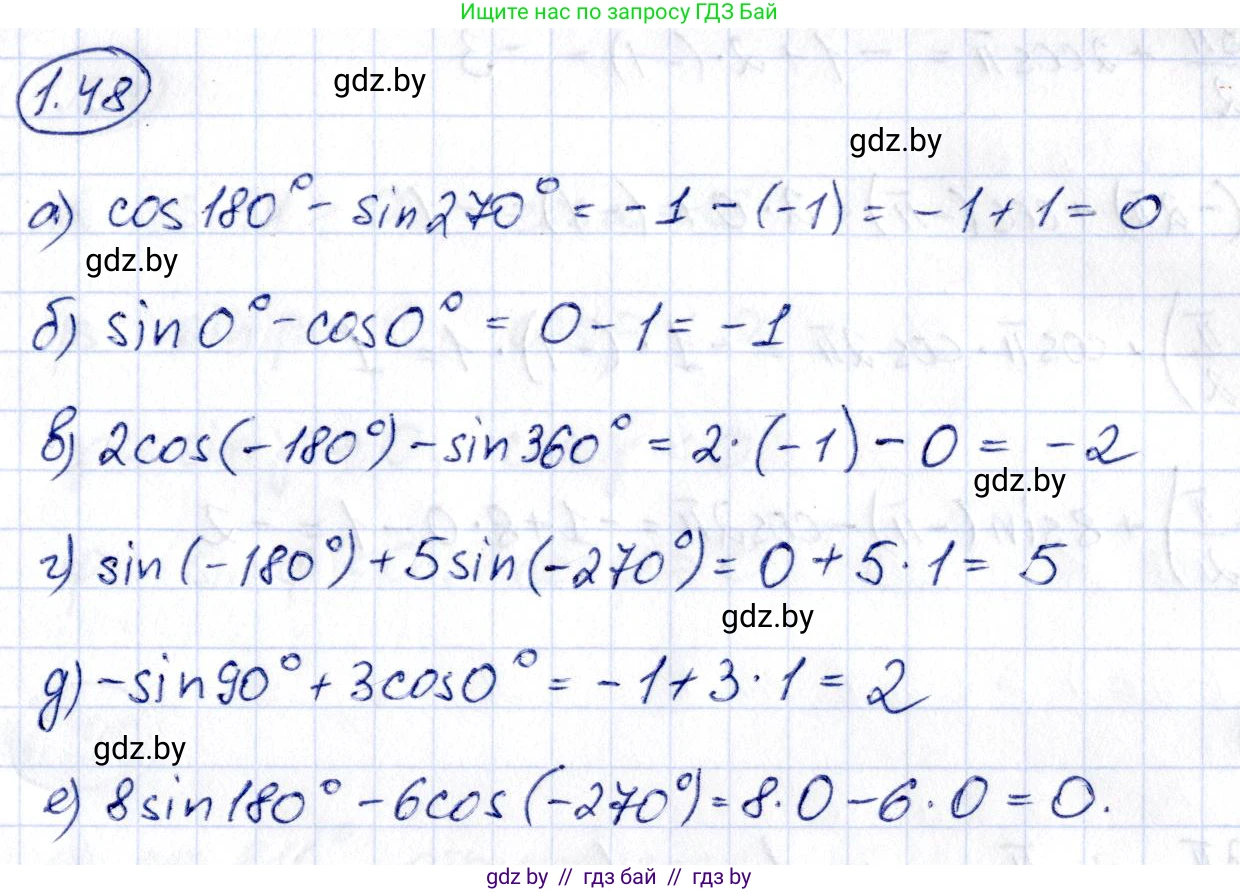 Ищите нас по запросу ГДЗ Бай
1.48
gdz.by
gdz.by
а) cos 180° - sin 270° = -1 - (-1) = -1 + 1 = 0
gdz.by
б) sin 0° - cos 0° = 0 - 1 = -1
в) 2cos(-180°) - sin 360° = 2·(-1) - 0 = -2
gdz.by
г) sin(-180°) + 5sin(-270°) = 0 + 5·1 = 5
gdz.by
д) -sin 90° + 3cos 0° = -1 + 3·1 = 2
gdz.by
е) 8sin 180° - 6cos(-270°) = 8·0 - 6·0 = 0.
gdz.by // гдз бай // гдз by